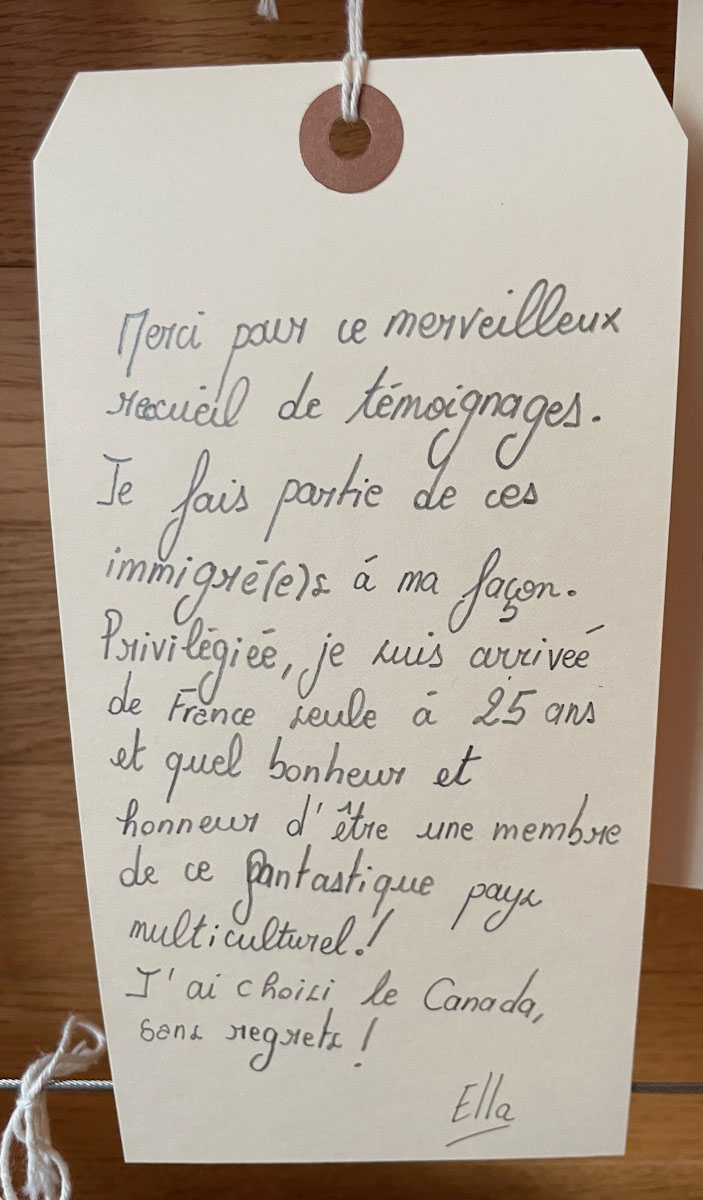 Merci pour ce merveilleux
recueil de témoignages.
Je fais partie de ces
immigré(e)s à ma façon.
Privilégiée, je suis arrivée
de France seule à 25 ans
et quel bonheur et
honneur d'être une membre
de ce fantastique pays
multiculturel!
J'ai choisi le Canada,
sans regrets!
Ella